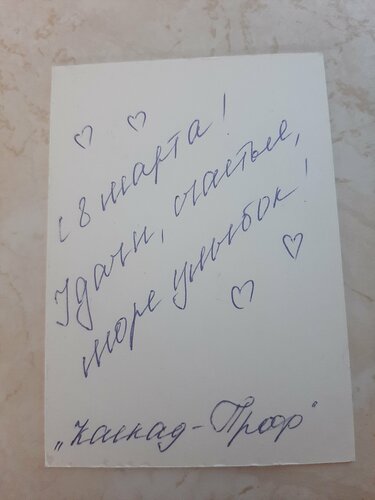 с 8 марта!
Удачи, счастья,
море улыбок!
"Каскад-Проф"